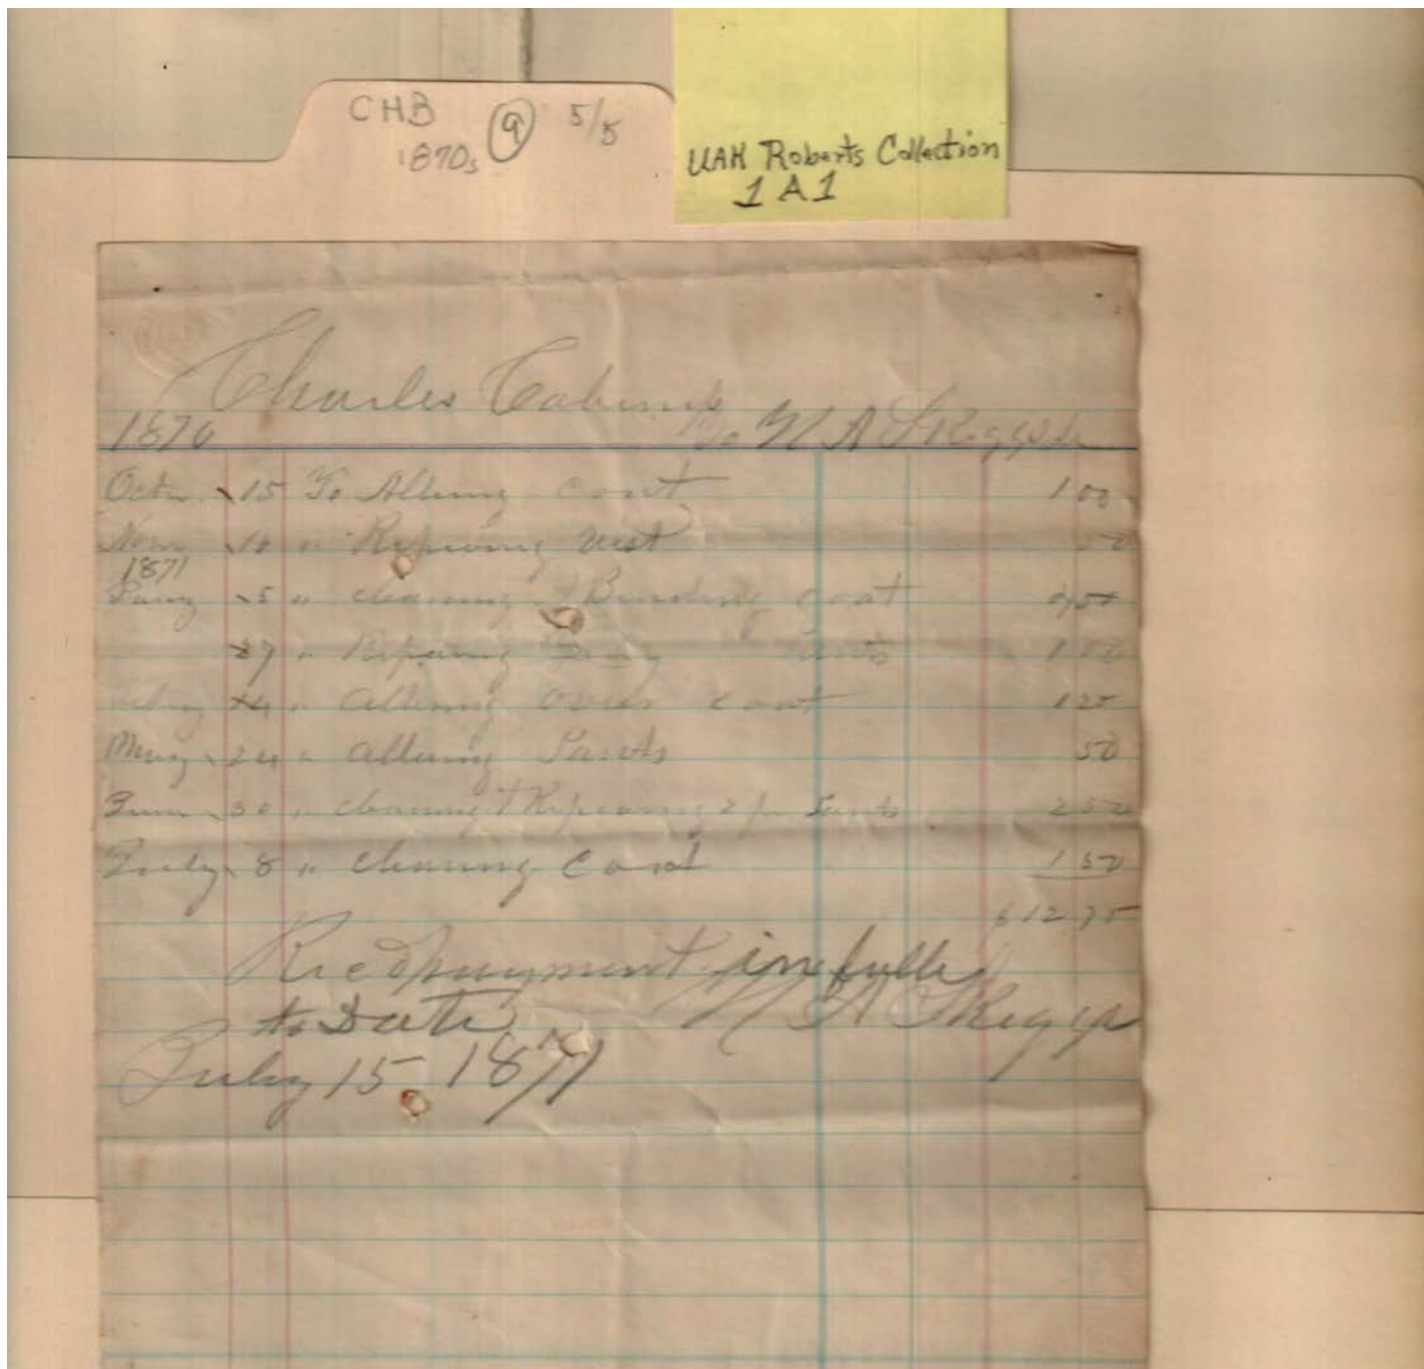 CHB 9 5/5
1870s
UAH Roberts Collection
1 A 1
Charles Cabiniss
1870 To W A Skeggs Dr
Octr. 15 To Altering coat 1 00
Novr 10 " Repairing vest 50
1871
Jany 5 " cleaning & Binding coat
27 " Repairing
24 " Altering over coat 1 25
May 24 " altering Pants 50
June 30 " cleaning & Repairing 2 pr Pants 2 50
July 8 " cleaning coat 1 50
$ 12 75
Recd payment in full
to Date W A Skeggs
July 15 1871